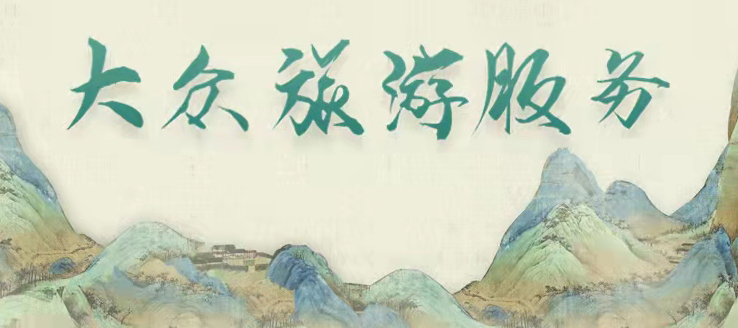 大众旅游服务